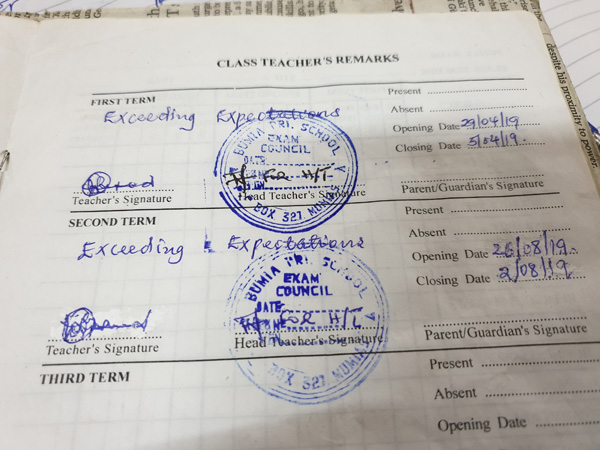 CLASS TEACHER'S REMARKS
FIRST TERM
Exceeding Expectations
Present
Absent
Opening Date 29/04/19
Closing Date 5/04/19.
BUMIA PRI. SCHOOL
EXAM
COUNCIL
DATE
FOR H/T
BOX 327, MUMIAS
Teacher's Signature
Head Teacher's Signature
Parent/Guardian's Signature
SECOND TERM
Exceeding Expectations
Present
Absent
Opening Date 26/08/19.
Closing Date 2/08/19.
BUMIA PRI. SCHOOL
EXAM
COUNCIL
DATE
FOR H/T
BOX 327, MUMIAS
Teacher's Signature
Head Teacher's Signature
Parent/Guardian's Signature
THIRD TERM
Present
Absent
Opening Date
despite his proximity to power.